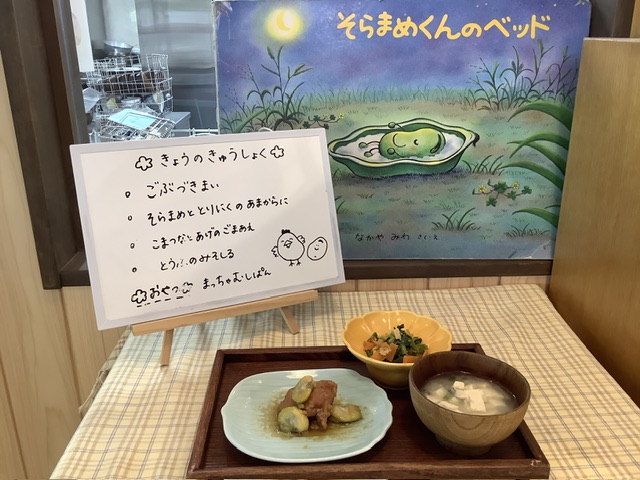 そらまめくんのベッド
なかや みわ さく・え
きょうのきゅうしょく
ごぶづきまい
そらまめととりにくのあまからに
こまつなとあげのごまあえ
とうふのみそしる
おやつ まっちゃむしぱん